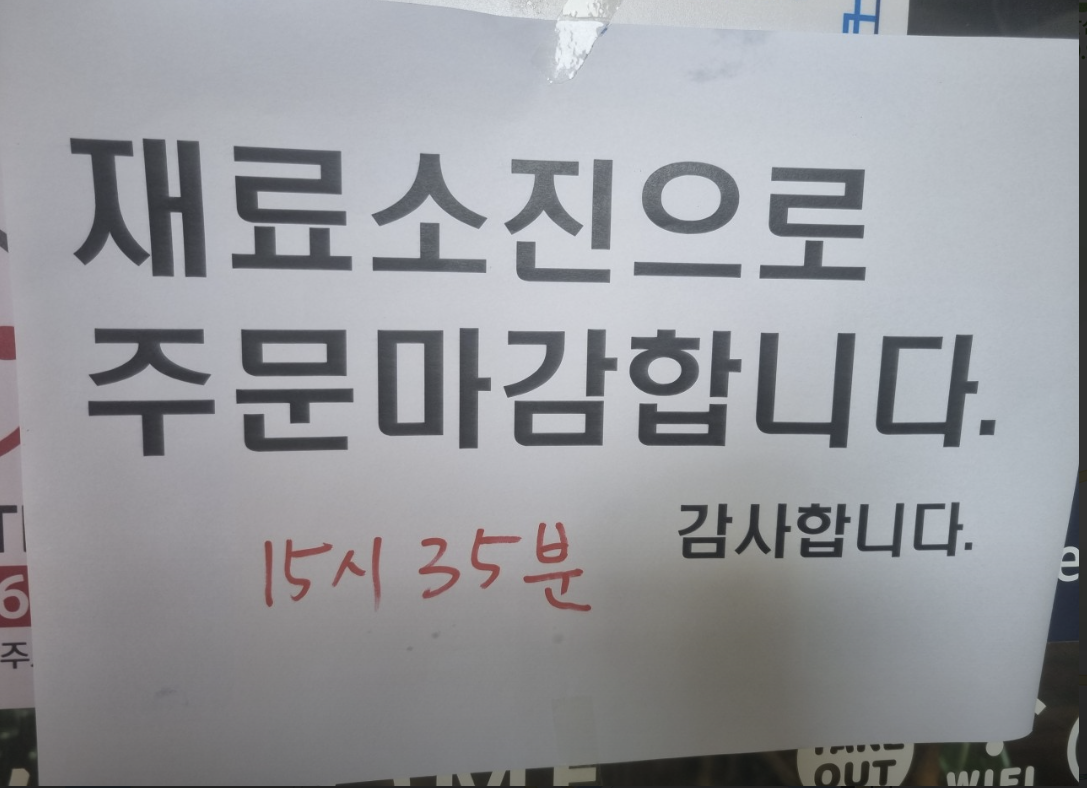 재료소진으로
주문마감합니다.
감사합니다.
15시 35분
6
주
e
OUT
WIFI